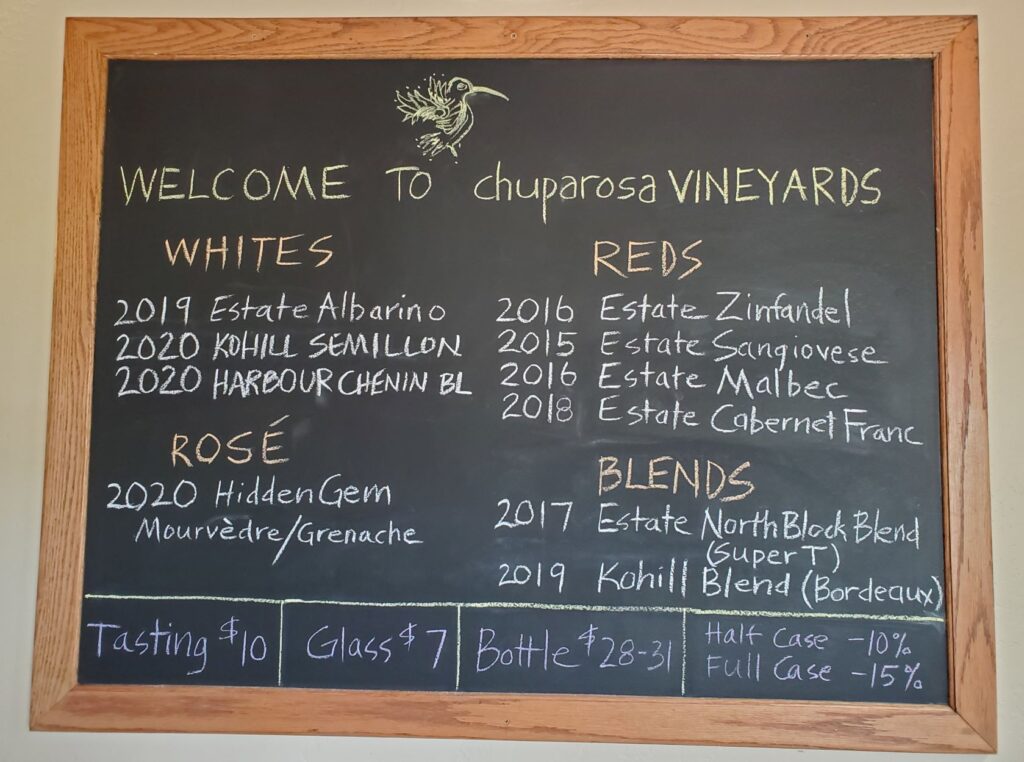 WELCOME TO chuparosa VINEYARDS
WHITES
2019 Estate Albarino
2020 KOHILL SEMILLON
2020 HARBOUR CHENIN BL
ROSÉ
2020 Hidden Gem
Mourvèdre/Grenache
REDS
2016 Estate Zinfandel
2015 Estate Sangiovese
2016 Estate Malbec
2018 Estate Cabernet Franc
BLENDS
2017 Estate North Block Blend
(Super T)
2019 Kohill Blend (Bordeaux)
Tasting $10
Glass $7
Bottle $28-31
Half Case -10%
Full Case -15%